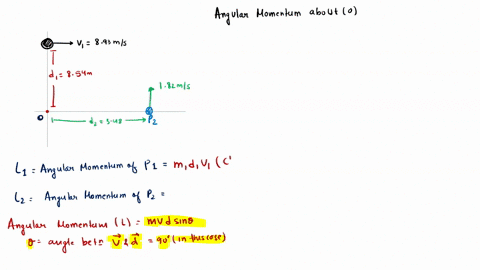 Angular Momentum about (o)
V₁ = 8.93 m/s
d₁ = 8.54m
1.82 m/s
O
P₂
L₁ = Angular Momentum of P1 = m₁d₁V₁ (C'
L₂ = Angular Momentum of P₂ =
Angular Momentum (L) = mvd sinθ
θ = angle betn V⃗ & d⃗ = 90° (in this case)